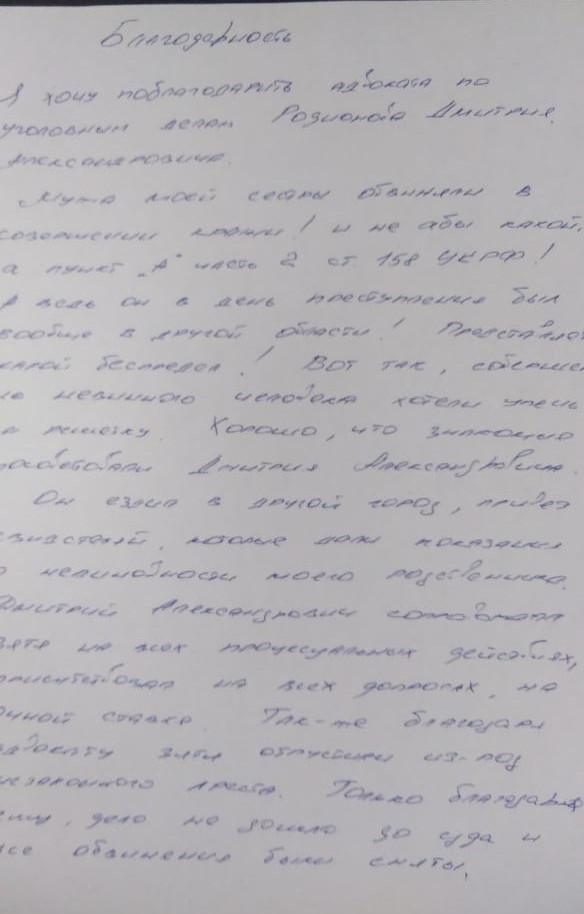 Благодарность
Я хочу поблагодарить адвоката по
уголовным делам Родионова Дмитрия
Александровича.
Мужа моей сестры обвиняли в
совершении кражи! и не абы какой,
а пункт "А" часть 2 ст. 158 УК РФ!
А ведь он в день преступления был
вообще в другой области! Представляет
какой беспредел! Вот так, совершен
но невинного человека хотели упечь
а решетку. Хорошо, что знакомые
посоветовали Дмитрия Александровича.
Он ездил в другой город, привез
свидетелей, которые дали показания
о невиновности моего родственника.
Дмитрий Александрович сопровождал
зятя на всех процесуальных действиях,
присутствовал на всех допросах, на
очной ставке. Так-же благодаря
адвокату зятя отпустили из-под
незаконного ареста. Только благодаря
ему, дело не дошло до суда и
все обвинения были сняты.